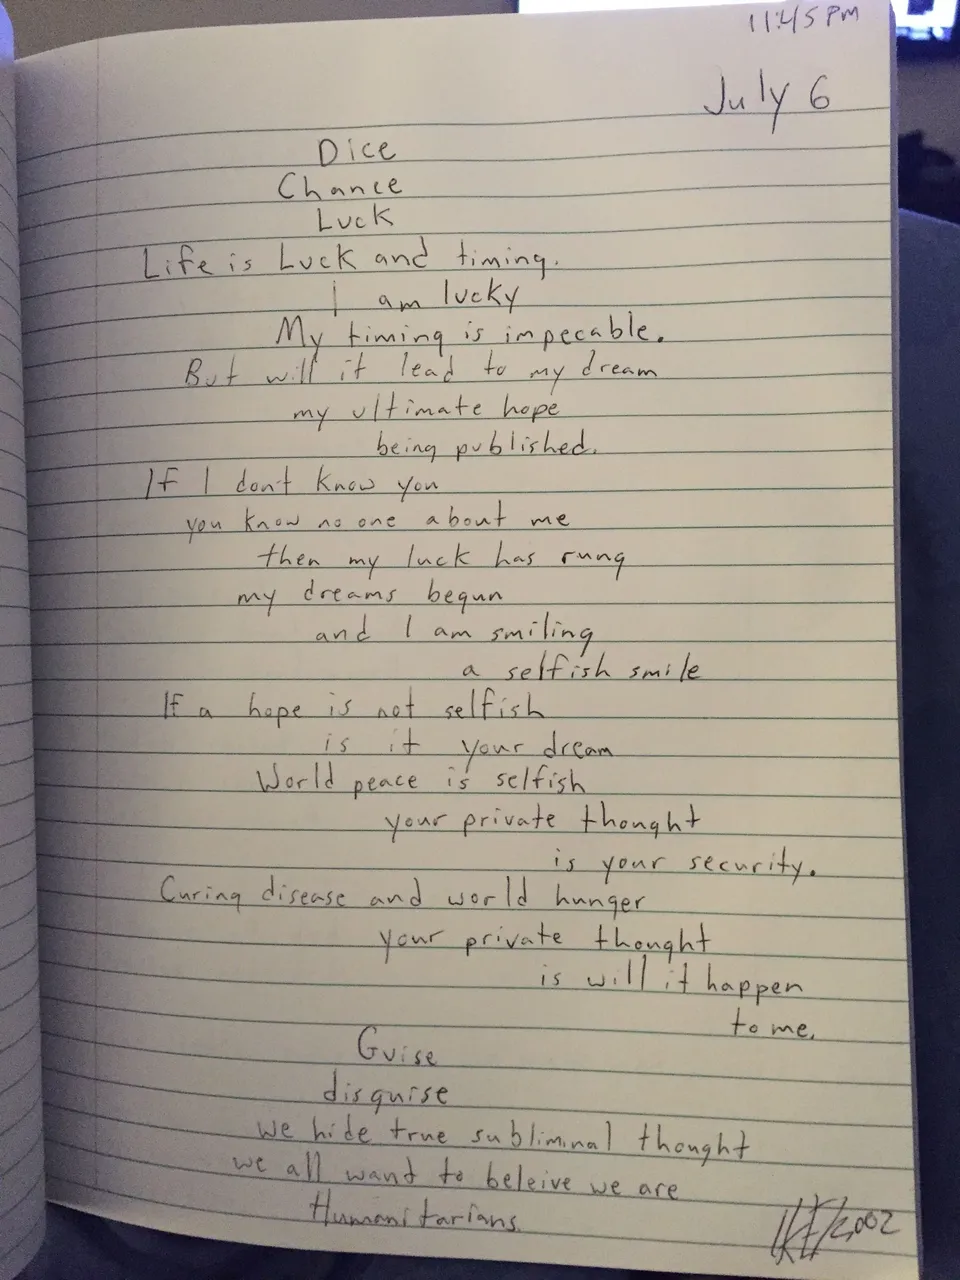 11:45 PM
July 6
Dice
Chance
Luck
Life is Luck and timing.
I am lucky
My timing is impecable.
But will it lead to my dream
my ultimate hope
being published.
If I don't know you
you know no one about me
then my luck has rung
my dreams begun
and I am smiling
a selfish smile
If a hope is not selfish
is it your dream
World peace is selfish
your private thought
is your security.
Curing disease and world hunger
your private thought
is will it happen
to me.
Guise
disguise
we hide true subliminal thought
we all want to beleive we are
Humanitarians.
/2002